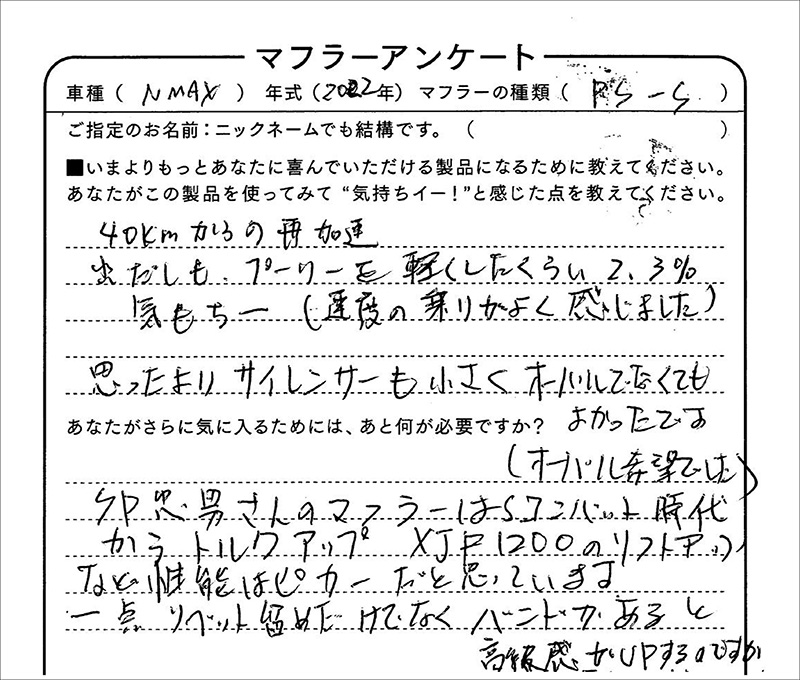 マフラーアンケート
車種（ NMAX ） 年式（2022年） マフラーの種類（ PS-S ）
ご指定のお名前：ニックネームでも結構です。（ ）
■いまよりもっとあなたに喜んでいただける製品になるために教えてください。
あなたがこの製品を使ってみて “気持ちイー！”と感じた点を教えてください。
40Kmからの再加速
出だしも、プーリーを軽くしたくらい 2、3%
気もちー（速度の乗りがよく感じました）
思ったより サイレンサーも小さく オーバルでなくても
あなたがさらに気に入るためには、あと何が必要ですか？ よかったです
（オーバル希望でした）
SP忠男さんのマフラーはSコンバット時代
からトルクアップ XJR1200のリフトアップ
など性能はピカ一だと思っています
一点 リベット留めだけでなく バンドがあると
高級感がUPするのですが